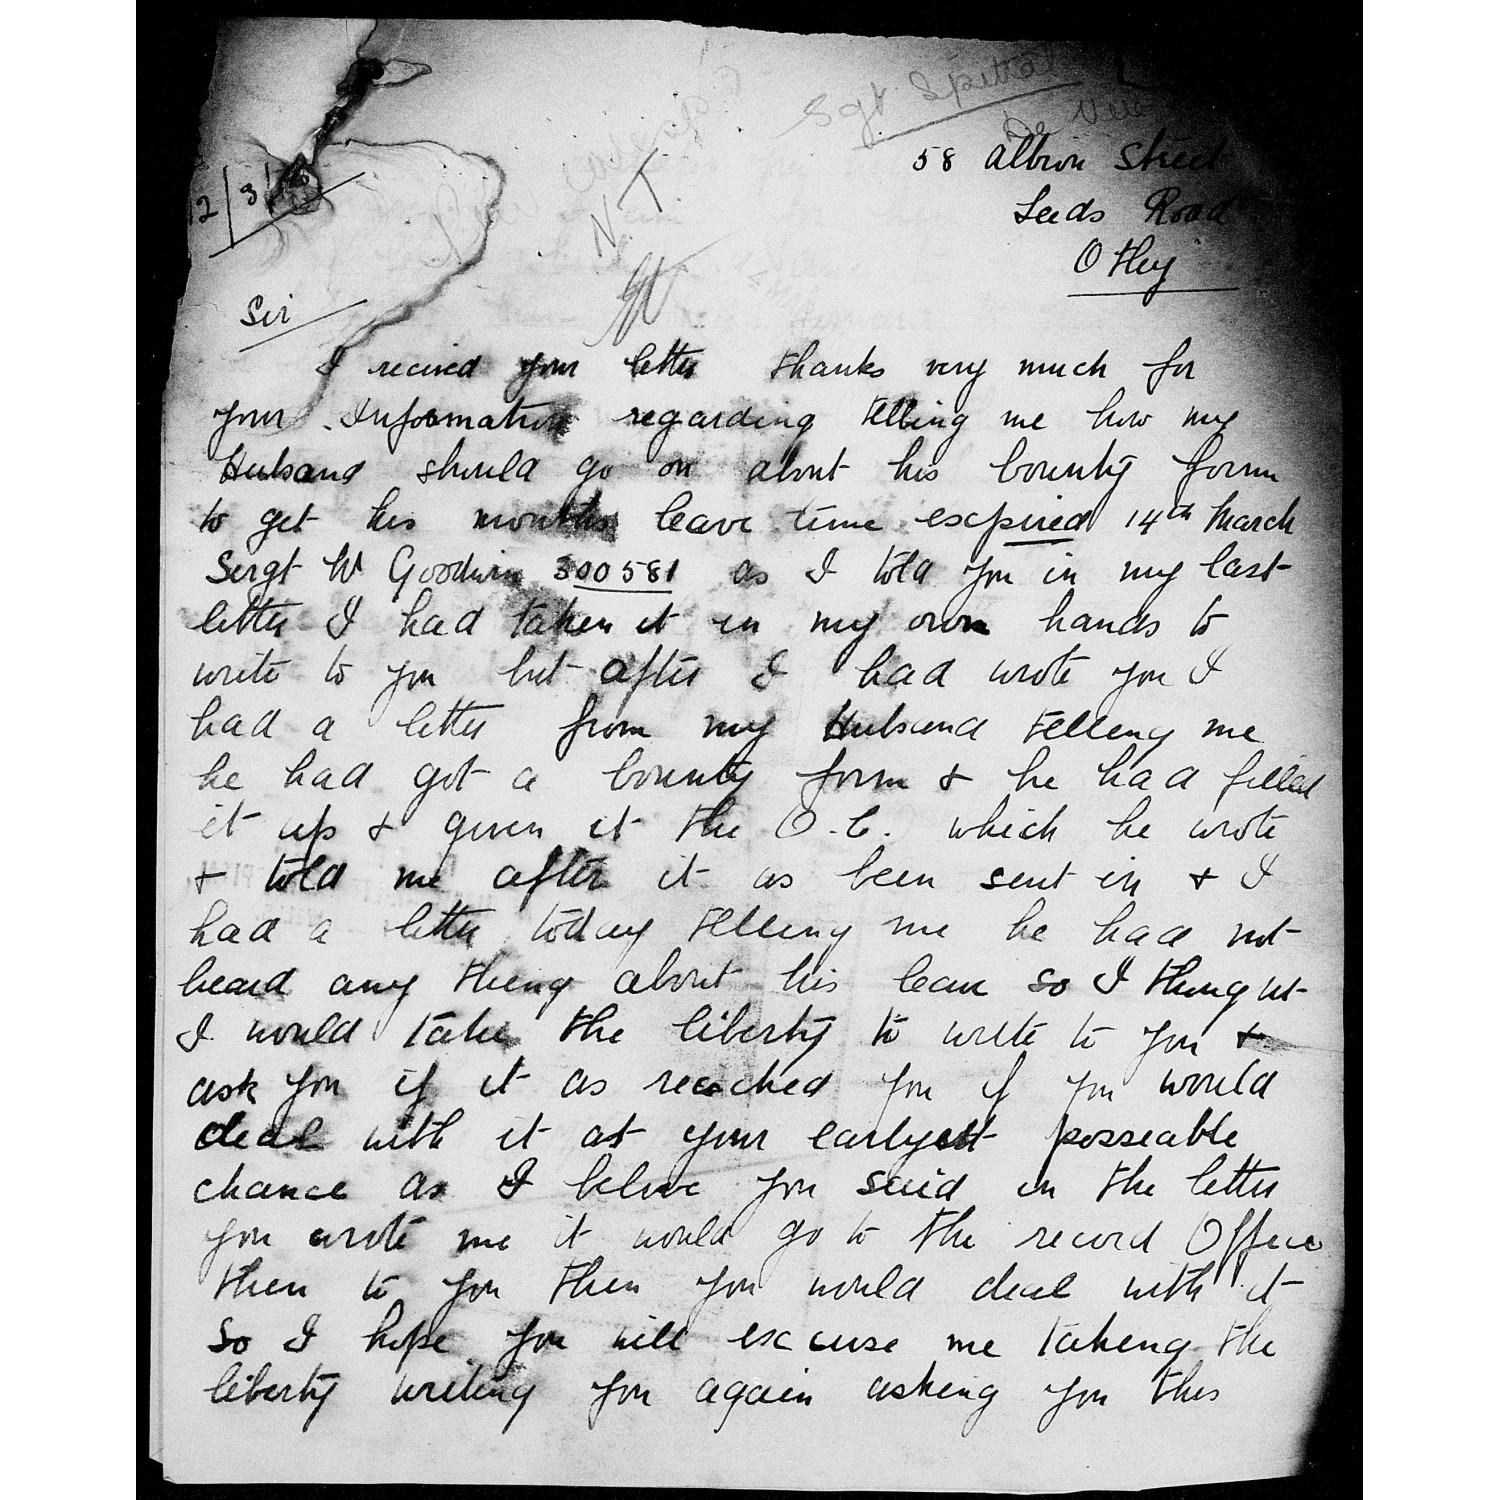 Sgt Spittal
58 Albion Street
Leeds Road
Otley
12/3/
N.T
Sir
I recived your letter thanks very much for
your Information regarding telling me how my
Husband should go on about his bounty form
to get his months leave time expired 14th March
Sergt W Goodwin 300581 as I told you in my last
letter I had taken it in my own hands to
write to you but after I had wrote you I
had a letter from my Husband telling me
he had got a bounty form & he had filled
it up & given it the O.C. which he wrote
& told me after it as been sent in & I
had a letter today telling me he had not
heard any thing about his leave so I thought
I would take the liberty to write to you &
ask you if it as reached you if you would
deal with it at your earlyest posseable
chance as I belive you said in the letter
you wrote me it would go to the record Office
then to you then you would deal with it
so I hope you will excuse me takeng the
liberty writing you again asking you this